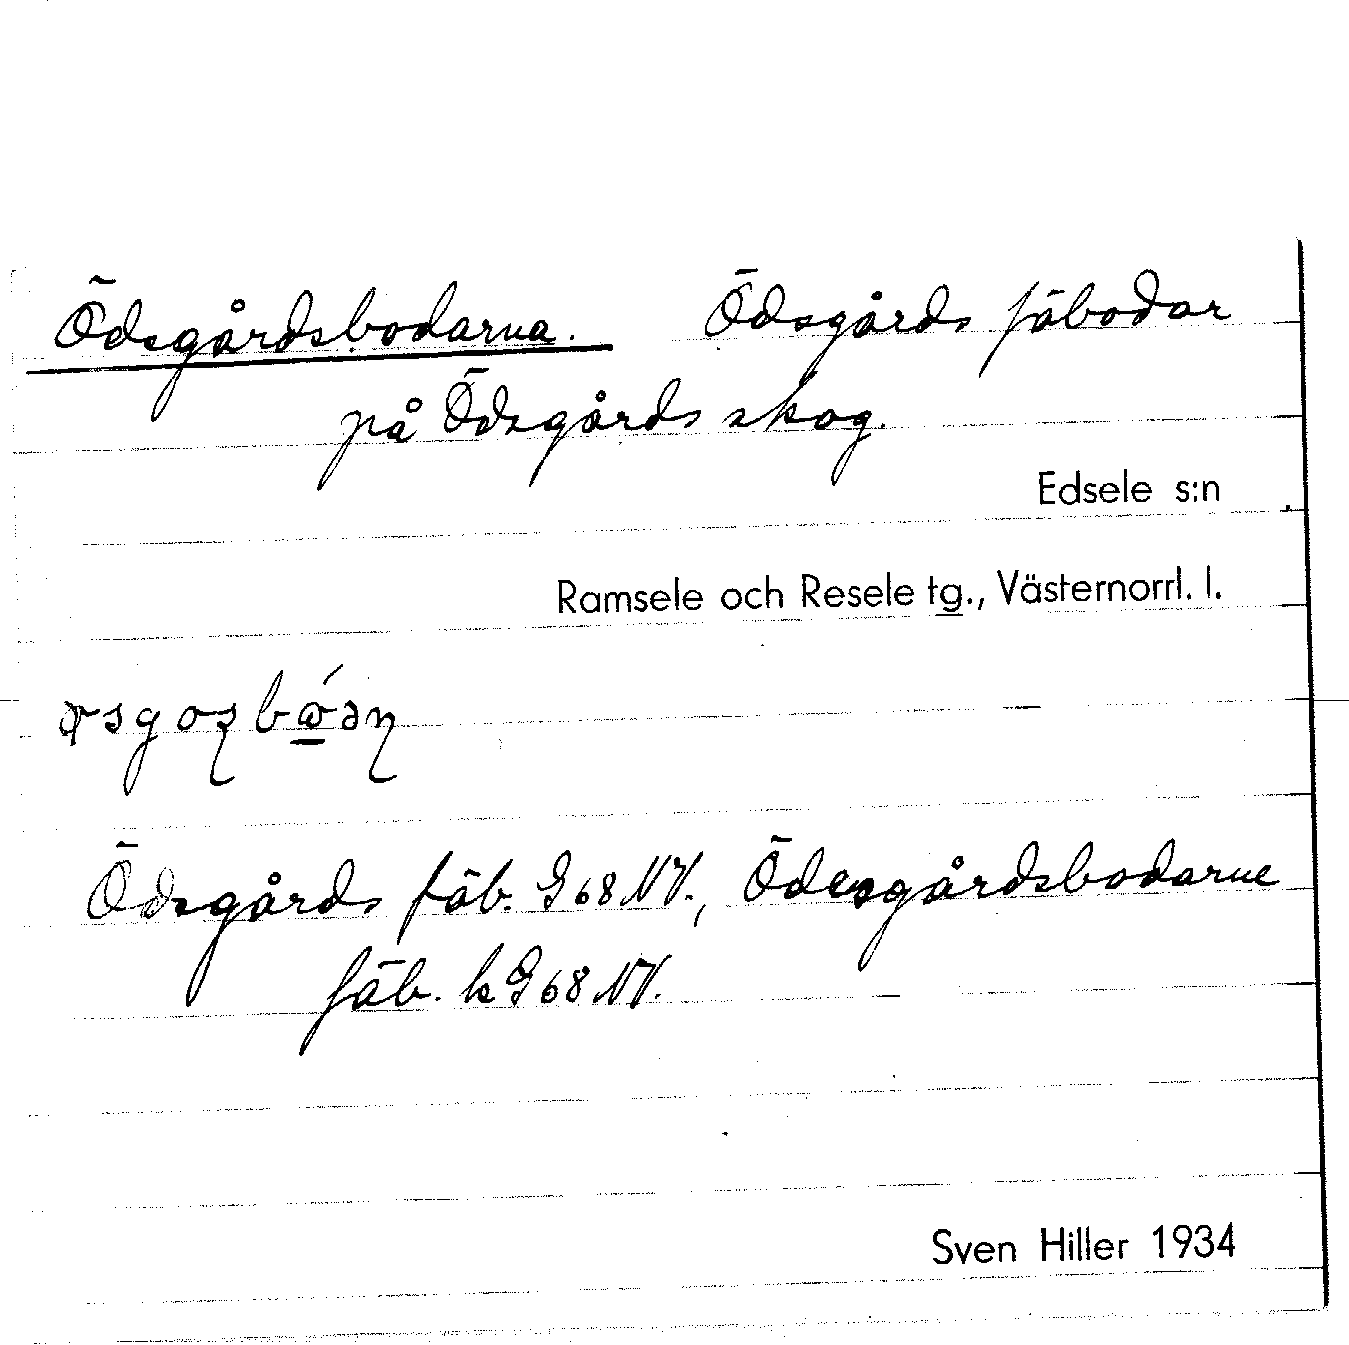 Ödsgårdsbodarna. Ödsgårds fäbodar
på Ödsgårds skog.
Edsele s:n
Ramsele och Resele tg., Västernorrl. l.
Ödsgårds fäb. G 68 NV., Ödesgårdsbodarne
fäb. k G 68 NV.
Sven Hiller 1934